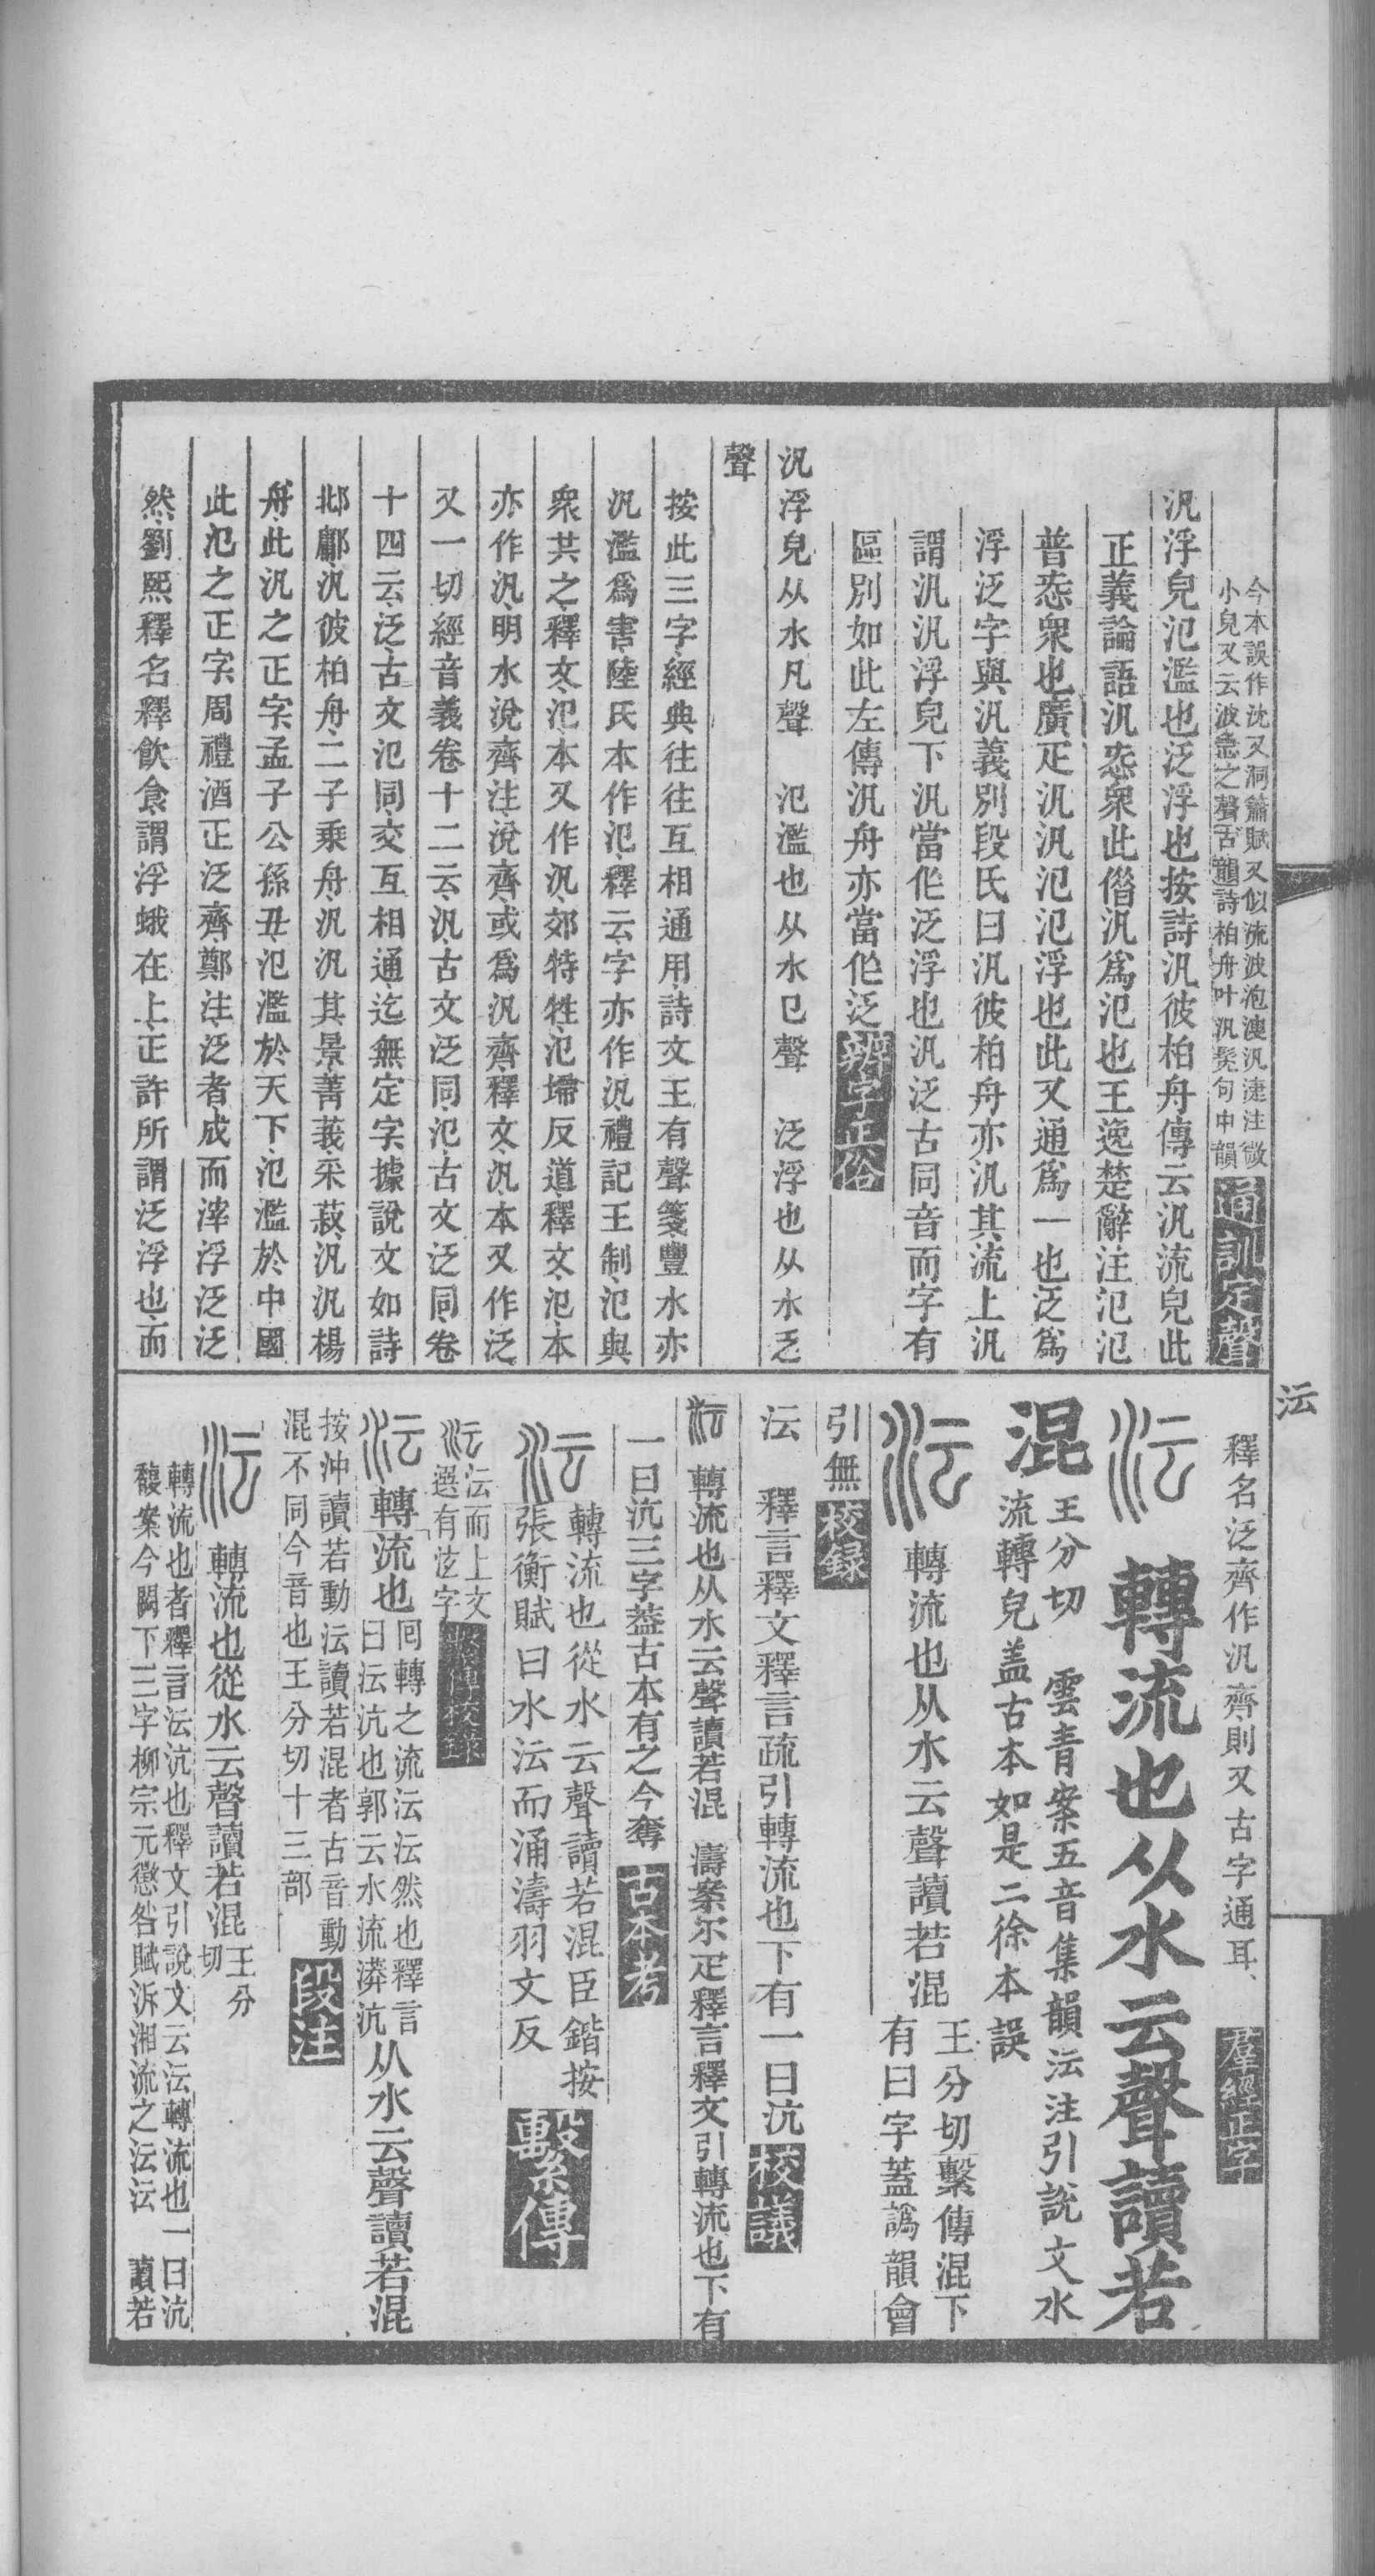 今本誤作沈又洞簫賦又似流波泡溲汎㳫注微
小皃又云波急之聲古韻詩柏舟叶汎髧句中韻通訓定聲
汎浮皃氾濫也泛浮也按詩汎彼柏舟傳云汎流皃此
正義論語汎㤅衆此偺汎爲氾也王逸楚辭注氾氾
普㤅衆也廣疋汎汎氾氾浮也此又通爲一也泛爲
浮泛字與汎義別段氏曰汎彼柏舟亦汎其流上汎
謂汎汎浮皃下汎當作泛浮也汎泛古同音而字有
區別如此左傳汎舟亦當作泛辨字正俗
汎浮皃从水凡聲　氾濫也从水㔾聲　泛浮也从水乏
聲
按此三字經典往往互相通用詩文王有聲箋豐水亦
汎濫爲害陸氏本作氾釋云字亦作汎禮記王制氾與
衆共之釋文氾本又作汎郊特牲氾埽反道釋文氾本
亦作汎明水涚齊注涚齊或爲汎齊釋文汎本又作泛
又一切經音義卷十二云汎古文泛同氾古文泛同卷
十四云泛古文氾同交互相通迄無定字據說文如詩
邶鄘汎彼柏舟二子乘舟汎汎其景菁莪采菽汎汎楊
舟此汎之正字孟子公孫丑氾濫於天下氾濫於中國
此氾之正字周禮酒正泛齊鄭注泛者成而滓浮泛泛
然劉熙釋名釋飲食謂浮蛾在上正許所謂泛浮也而
沄
釋名泛齊作汎齊則又古字通耳羣經正字
沄　轉流也从水云聲讀若
混　王分切　雲青案五音集韻沄注引說文水
流轉皃盖古本如是二徐本誤
沄　轉流也从水云聲讀若混　王分切繫傳混下
有曰字蓋譌韻會
引無校録
沄　釋言釋文釋言疏引轉流也下有一曰沆校議
沄　轉流也从水云聲讀若混　濤案尔疋釋言釋文引轉流也下有
一曰沆三字葢古本有之今奪古本考
沄　轉流也從水云聲讀若混臣鍇按
張衡賦曰水沄而涌濤羽文反繫傳
沄　沄而上文
選有沄字繫傳校録
沄　轉流也　囘轉之流沄沄然也釋言
曰沄沆也郭云水流漭沆　从水云聲讀若混
按沖讀若動沄讀若混者古音動
混不同今音也王分切十三部段注
沄　轉流也從水云聲讀若混　王分
切
轉流也者釋言沄沆也釋文引說文云沄轉流也一曰沆
馥案今闕下三字柳宗元懲咎賦泝湘流之沄沄　讀若